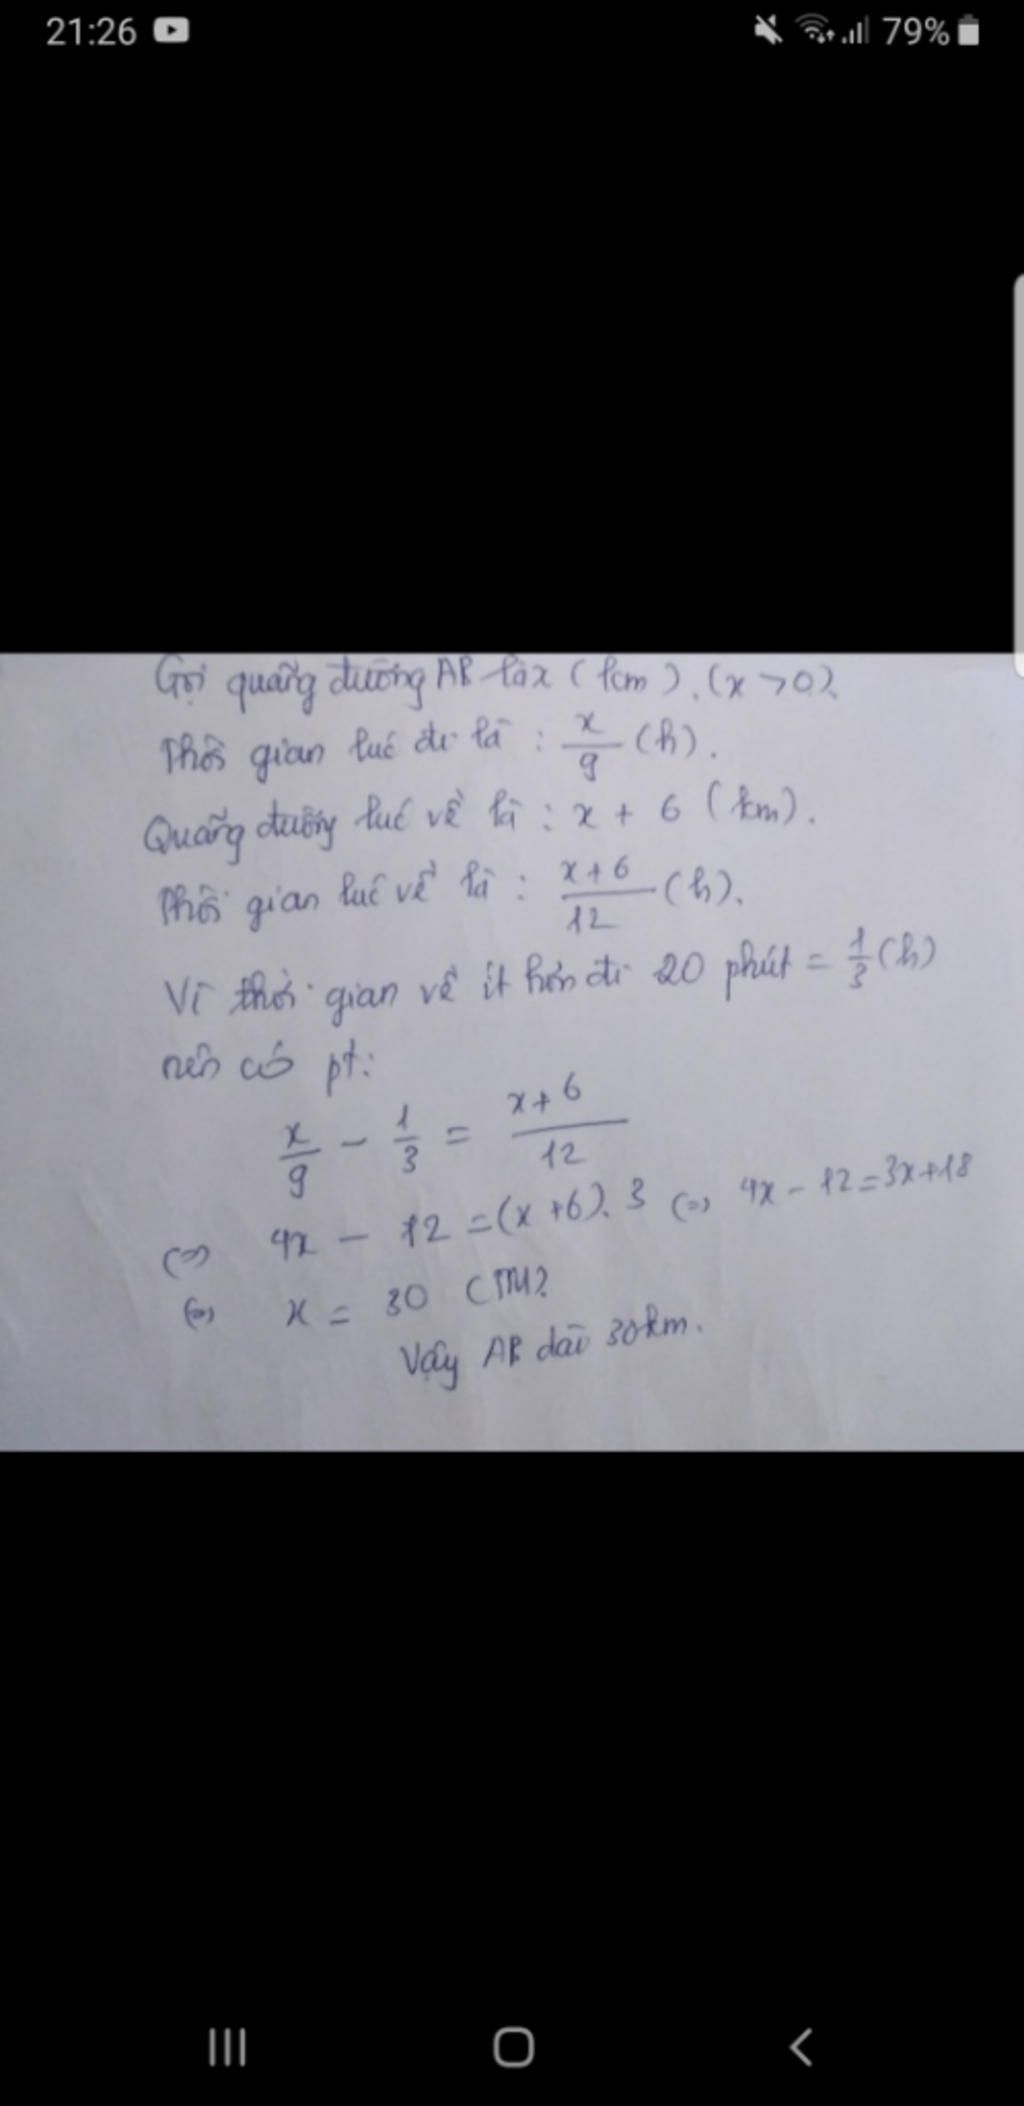 21:26 79%
Gọi quãng đường AB là x (km). (x > 0).
Thời gian lúc đi là : x/9 (h).
Quãng đường lúc về là : x + 6 (km).
Thời gian lúc về là : x+6/12 (h).
Vì thời gian về ít hơn đi 20 phút = 1/3 (h)
nên có pt:
x/9 - 1/3 = x+6/12
<=> 4x - 12 = (x+6).3 <=> 4x - 12 = 3x+18
<=> x = 30 (TM)
Vậy AB dài 30km.